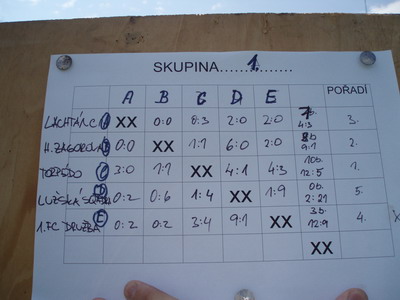 SKUPINA........1.......
A B C D E PORADÍ
A XX 0:0 0:3 2:0 2:0 7b 4:3 3.
H. ZAGOROLA B 0:0 XX 1:1 6:0 2:0 8b 9:1 2.
TORPÉDO C 3:0 1:1 XX 4:1 4:3 10b. 12:5 1.
LUŽSKÁ D 0:2 0:6 1:4 XX 1:9 0b. 2:21 5.
1.FC DRUŽBA E 0:2 0:2 3:4 9:1 XX 3b. 12:9 4.
XX